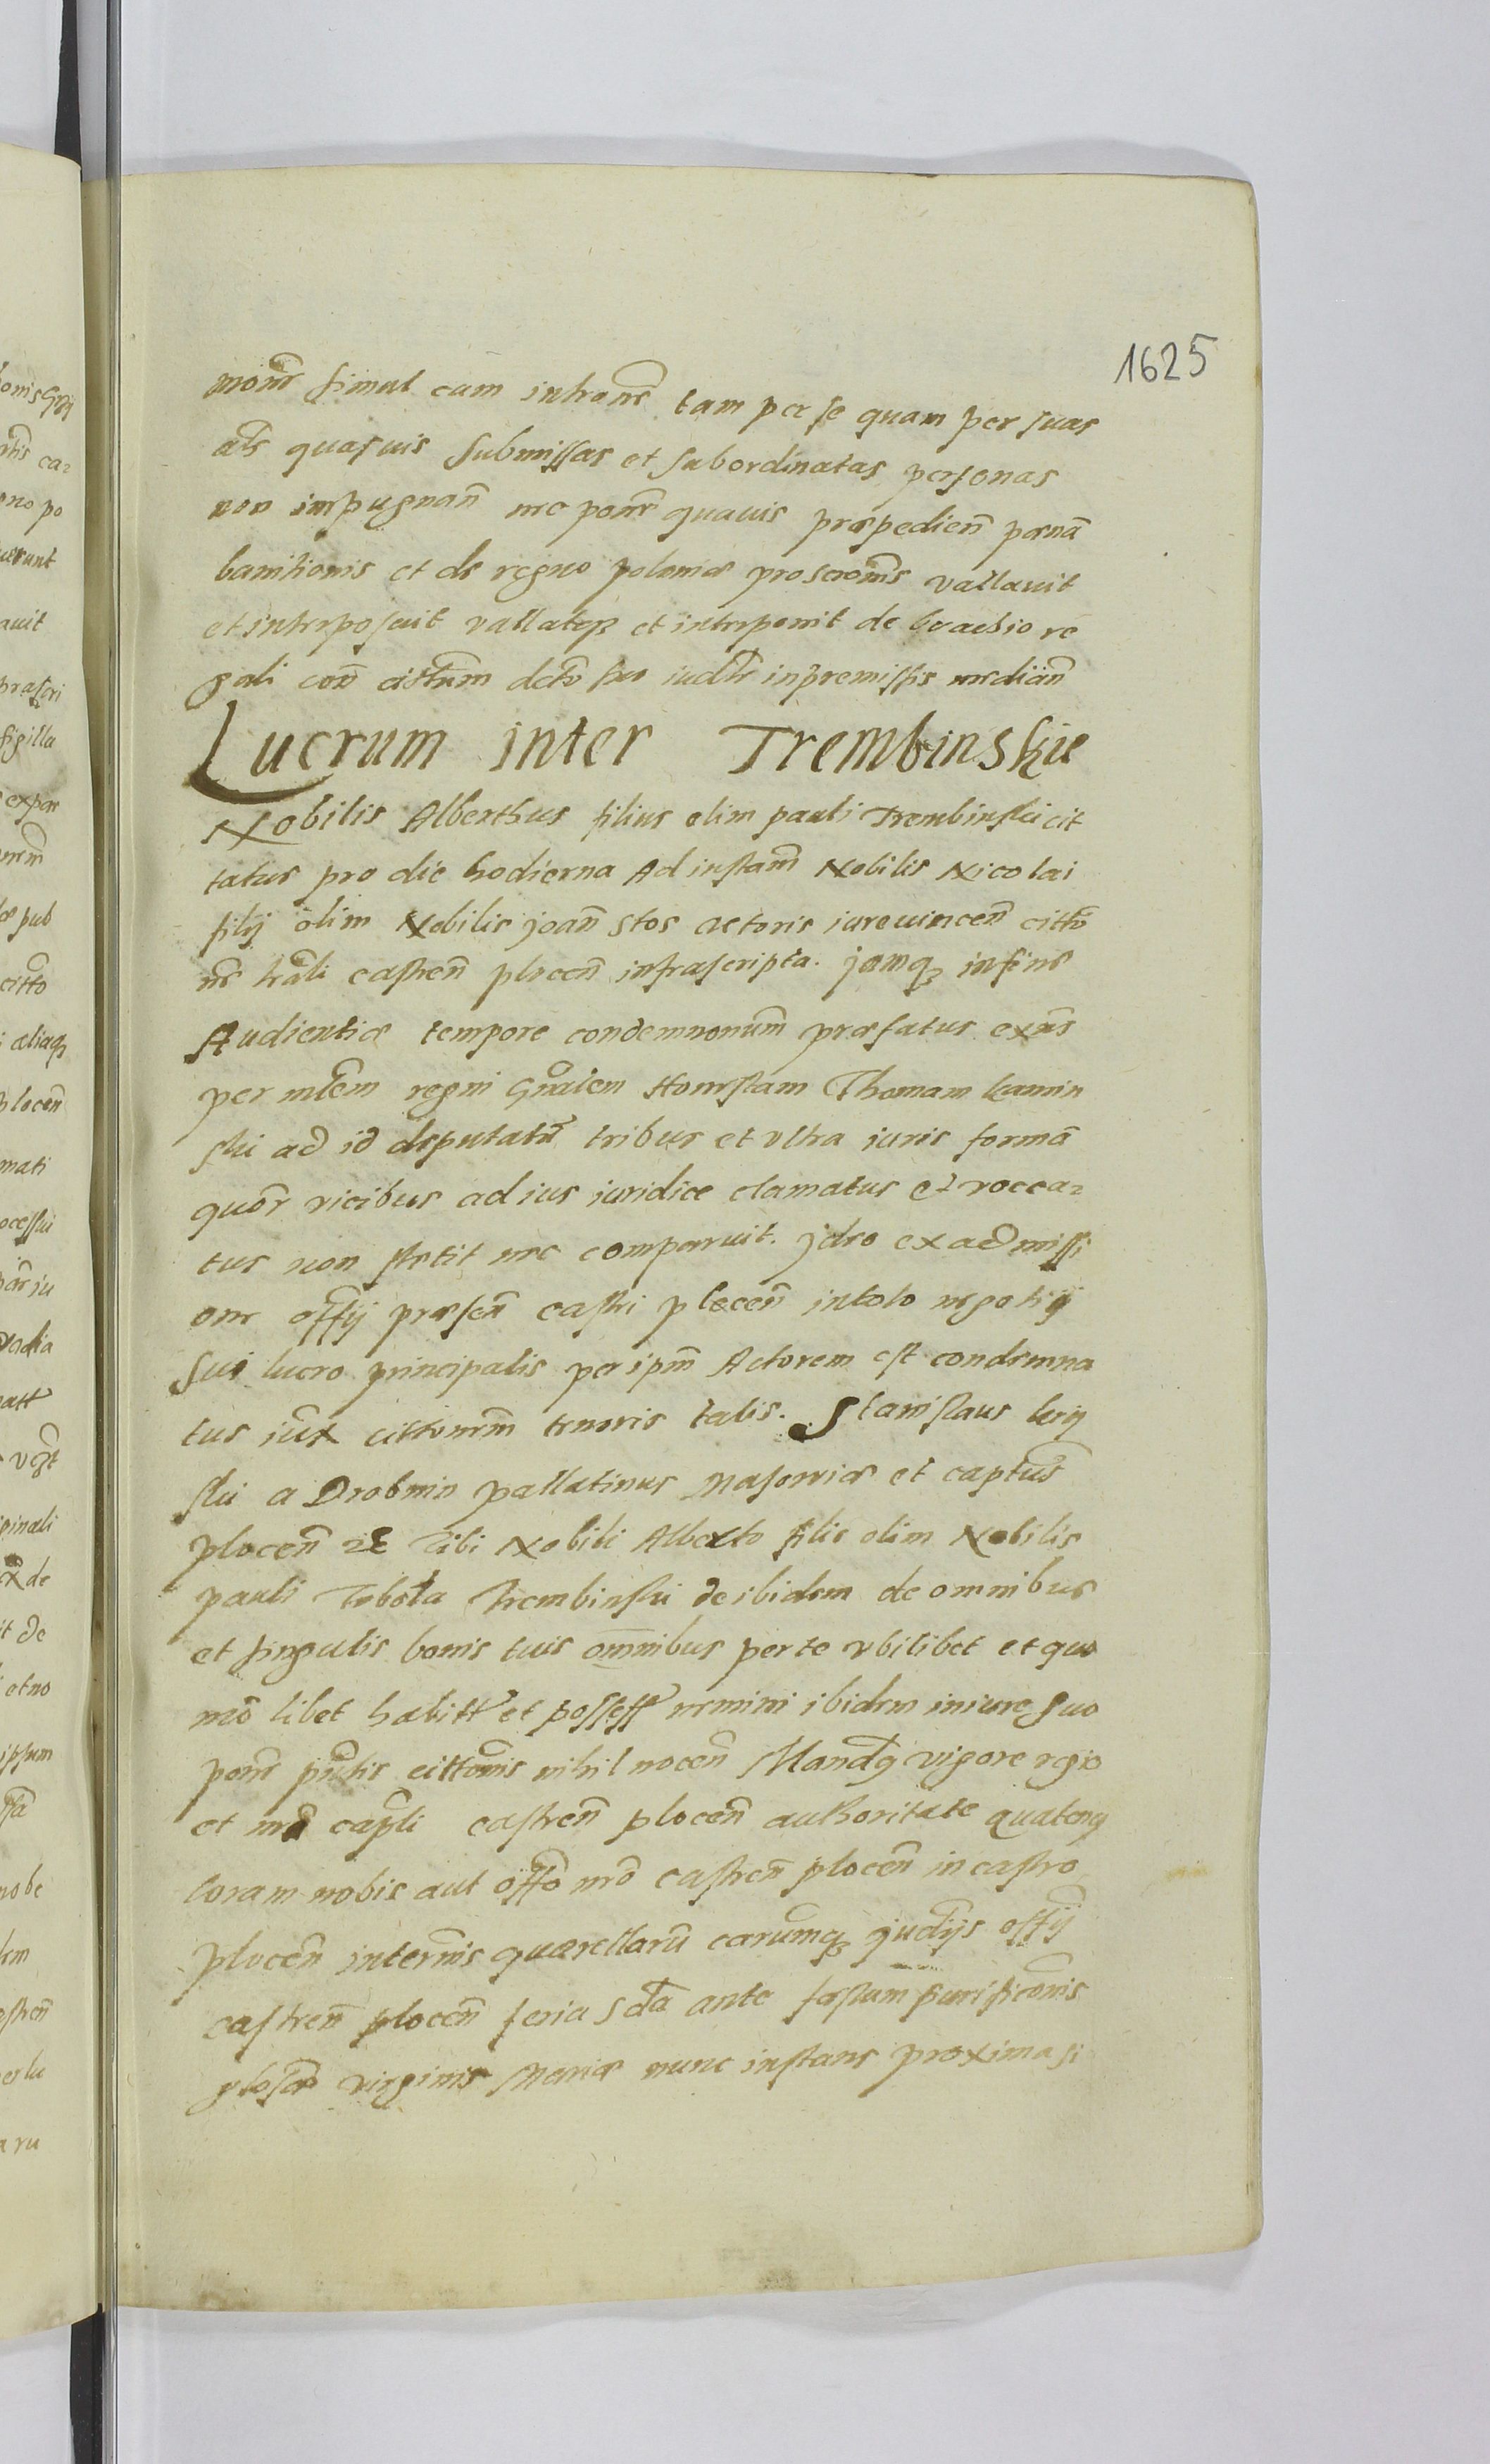 1625
mone simul cum introne tam per se quam per suas
als quasuis submissas et subordinatas personas
non impugnan̄ nec pone quauis præpedien̄ pœnā
banitionis et de regno poloniæ proscronis vallauit
et interposuit vallatqꝫ et interponit de brachio re
gali con citum dcto suo iudli inpremissis median̄
Lucrum inter Trembinskie
Nobilis Alberthus filius olim pauli Trembinski cit
tatus pro die hodierna Ad instam Nobilis Nicolai
filij olim Nobilis joan̄ Stos actoris iure vincen̄ citto
ne trali castren̄ plocen̄ infrascripta. jamqꝫ in fine
Audientiæ tempore condemnonum præfatus exns
per mlem regni Gnalem Honestam Thomam kamin
ski ad id deputatū tribus et vltra iuris formā
quor vicibus ad ius iuridice clamatus et vocca
tus non stetit nec comparuit. jdeo ex admissi
one offij præsen̄ castri plocen̄ in toto negotij
sui lucro principalis per ipm Actorem est condemna
tus iuxt cittonem tenoris talis. Stanislaus kry
ski a Drobnin pallatinus Masoviæ et captus
plocen̄ Tibi Nobili Alberto filio olim Nobilis
pauli Trembinski de ibidem de omnibus
et singulis bonis tuis omnibus per te vbilibet et quo
mo libet habitt et possess nemini ibidem in iure suo
pone pntis cittonis nihil nocen̄ Mandq vigore regio
et nra capli castren̄ plocen̄ authoritate quatenq
Coram nobis aut offo nro castren̄ plocen̄ in castro
plocen̄ in terminis querellarū earumqꝫ judijs offij
castren̄ plocen̄ feria Sda ante festum purificonis
glosæ virginis Mariæ nunc instans proxima si